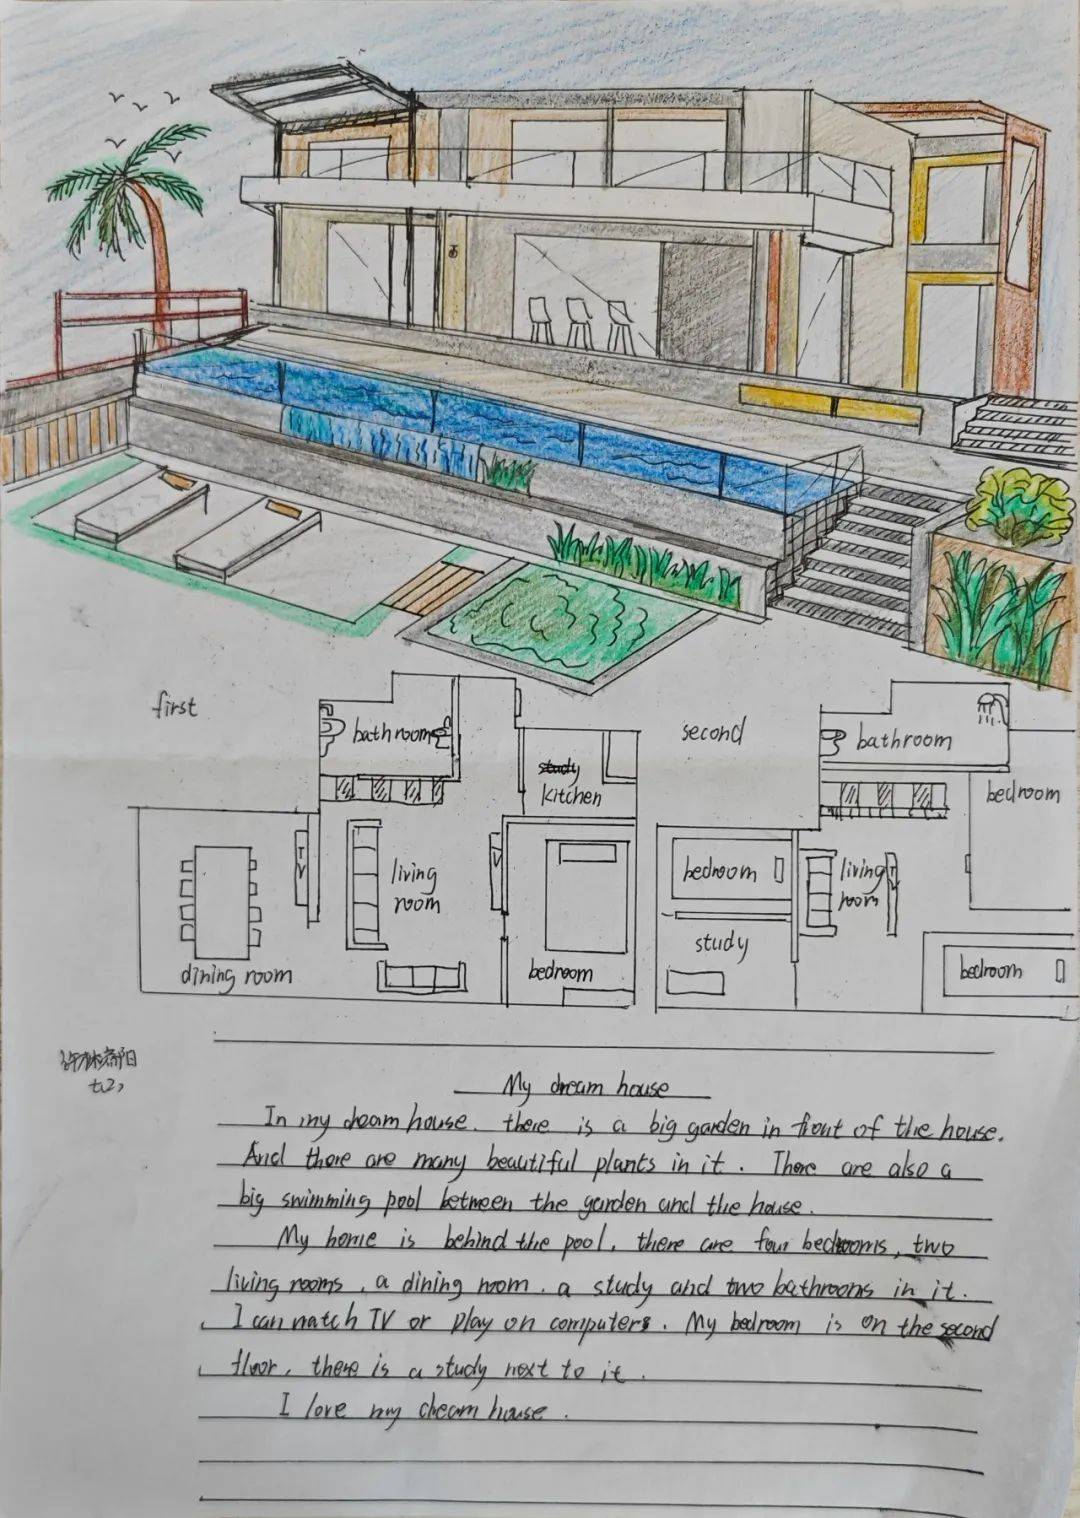 first
bathroom
study
kitchen
TV
living
room
TV
dining room
bedroom
second
bathroom
bedroom
bedroom
living
room
TV
study
bedroom
My dream house
In my dream house. there is a big garden in front of the house.
And there are many beautiful plants in it. There are also a
big swimming pool between the garden and the house.
My home is behind the pool, there are four bedrooms, two
living rooms, a dining room. a study and two bathrooms in it.
I can watch TV or play on computers. My bedroom is on the second
floor, there is a study next to it.
I love my dream house.